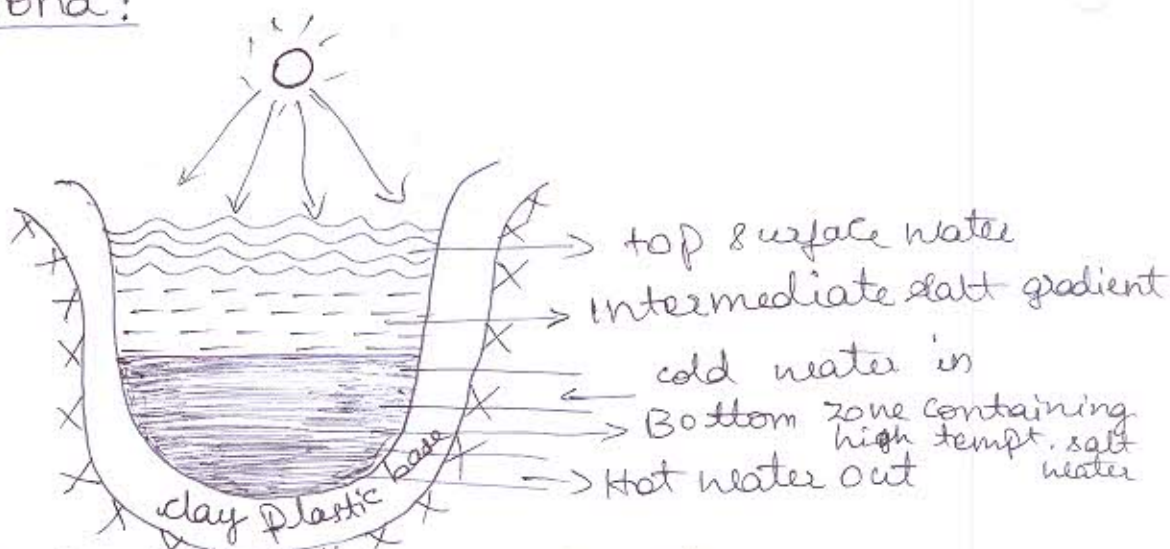 ond:
top surface water
Intermediate salt gradient
cold water in
Bottom zone containing
high tempt. salt
water
Hot water out
clay plastic base